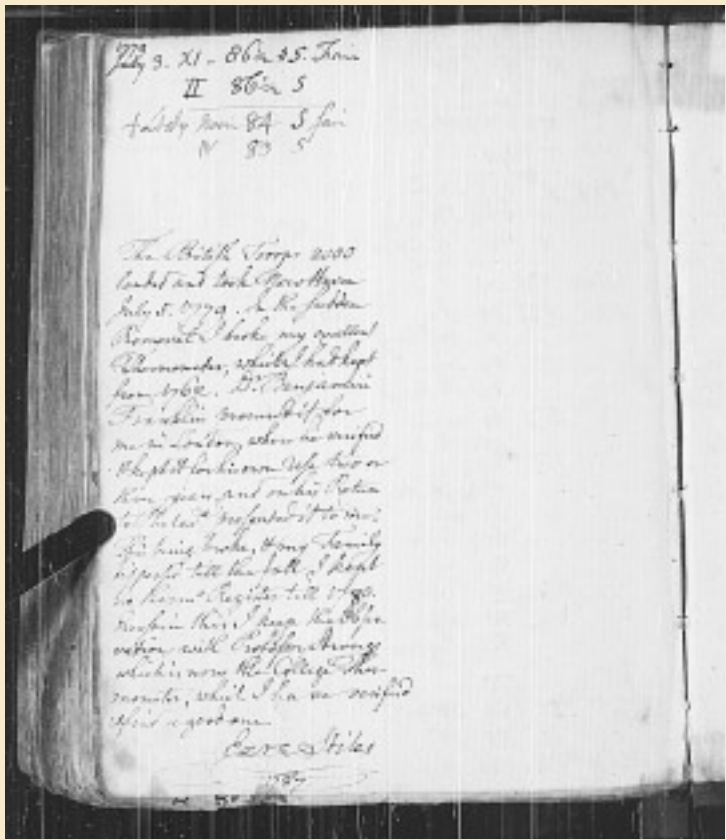 1779
July 3. XI - 86½ S 5. Fair
II 86½ S
Noon 84 S fair
IV 83 S
The British Troops
landed and took New Haven
July 5. 1779. In the sudden
Removal I broke my excellent
Thermometer, which I had kept
from 1762. Dr. Benjamin
Franklin procured it for
me in London, where he verified
& kept it for his own Use two or
three years, and on his Return
to presented it to me.
This being broke, & my Family
dispersed till the fall I kept
no Therm. Register till 1780.
this I keep the Obser
vation with Professor Strong
which is now the College Ther
mometer, which I have verified
a good one
Ezra Stiles